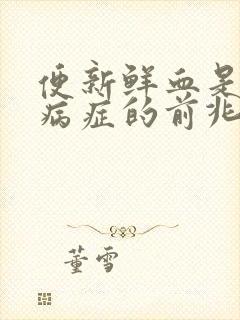 便新鲜血是
病症的前兆
董雪